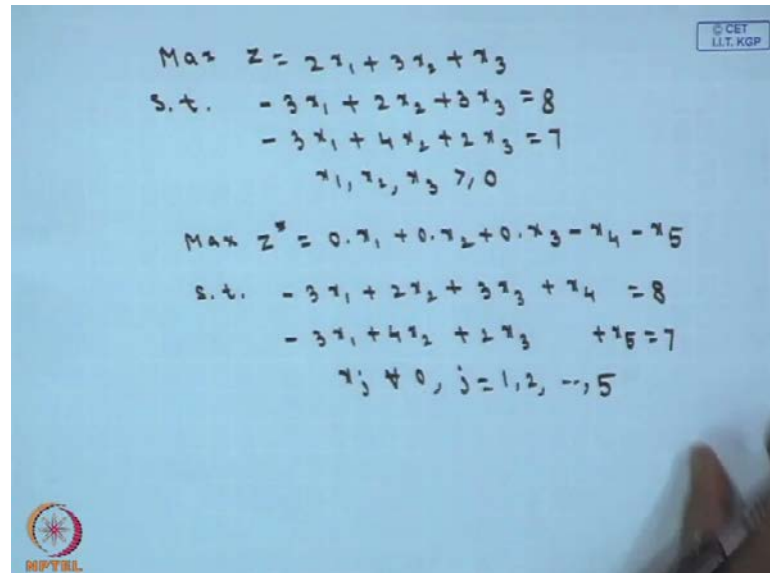 © CET
I.I.T. KGP
Max Z = 2x₁ + 3x₂ + x₃
s.t. - 3x₁ + 2x₂ + 3x₃ = 8
- 3x₁ + 4x₂ + 2x₃ = 7
x₁, x₂, x₃ ≥ 0
Max Z* = 0.x₁ + 0.x₂ + 0.x₃ - x₄ - x₅
s.t. - 3x₁ + 2x₂ + 3x₃ + x₄ = 8
- 3x₁ + 4x₂ + 2x₃ + x₅ = 7
xⱼ ∀ 0, j = 1, 2, --, 5
NPTEL